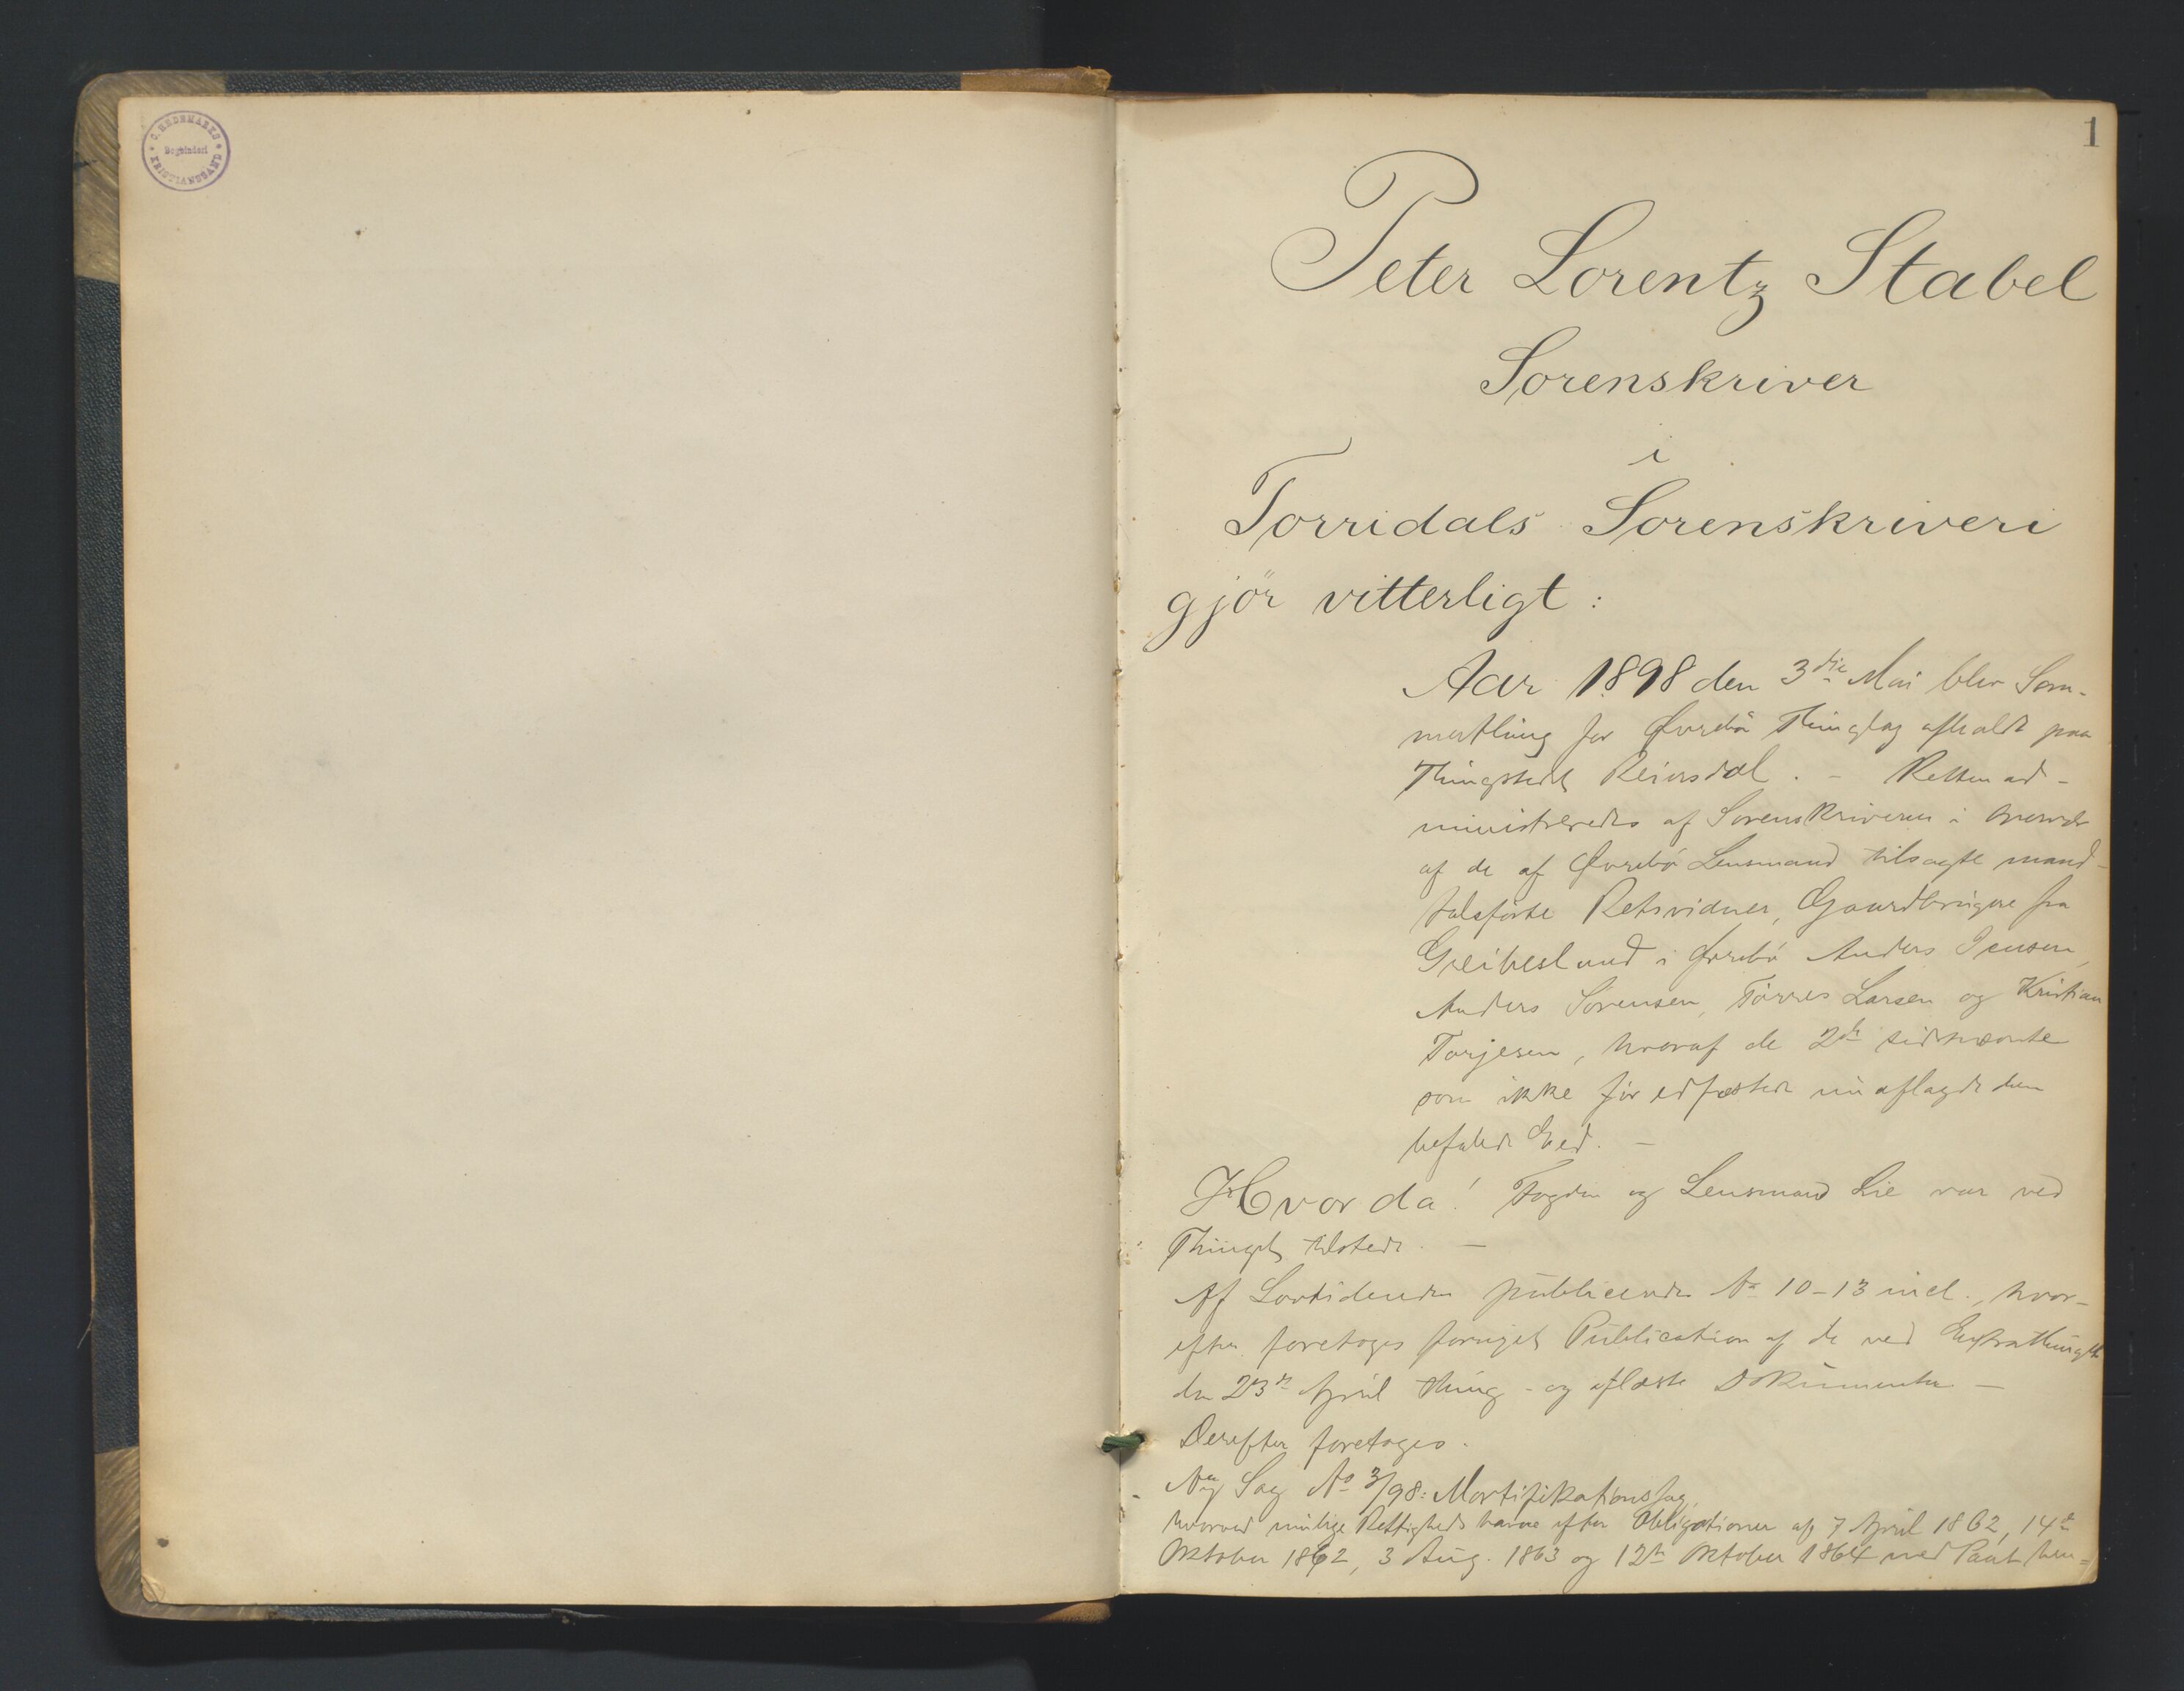 C. HEDEMARKS
Bogbinderi
KRISTIANSAND
1
Peter Lorentz Stabel
Sorenskriver
i
Torridals Sorenskriveri
gjör vitterligt:
Aar 1898 den 3die Mai blev Som-
mertling for Øvrebö Thinglag afholdt paa
Thingstedet Reiersdal. – Retten ad-
ministreredes af Sorenskriveren i Overvær
af de af Øvrebö Lensmand tilsagte mand-
talsförte Retsvidner, Gaardbrugere fra
Greibesland i Øvrebö Anders Jensen,
Anders Sörensen, Törres Larsen og Kristian
Torjesen, hvoraf de 2de sidstnævnte
som ikke för edfæstede nu aflagde den
befalede Eed. –
Hvorda! Fogden og Lensmand Lie var ved
Thinget tilstede. –
Af Lovtidenden publicerede No 10-13 incl., hvor-
efter foretoges fornyet Publication af de ved Extrathinget
den 23de April thing- og aflæste Dokumenter –
Derefter foretoges.
Ny Sag No 3/98: Mortifikationssag,
hvorved mulige Rettighedshavere efter Obligationer af 7 April 1862, 14de
Oktober 1862, 3 Aug. 1863 og 12te Oktober 1864 med Pant hen-